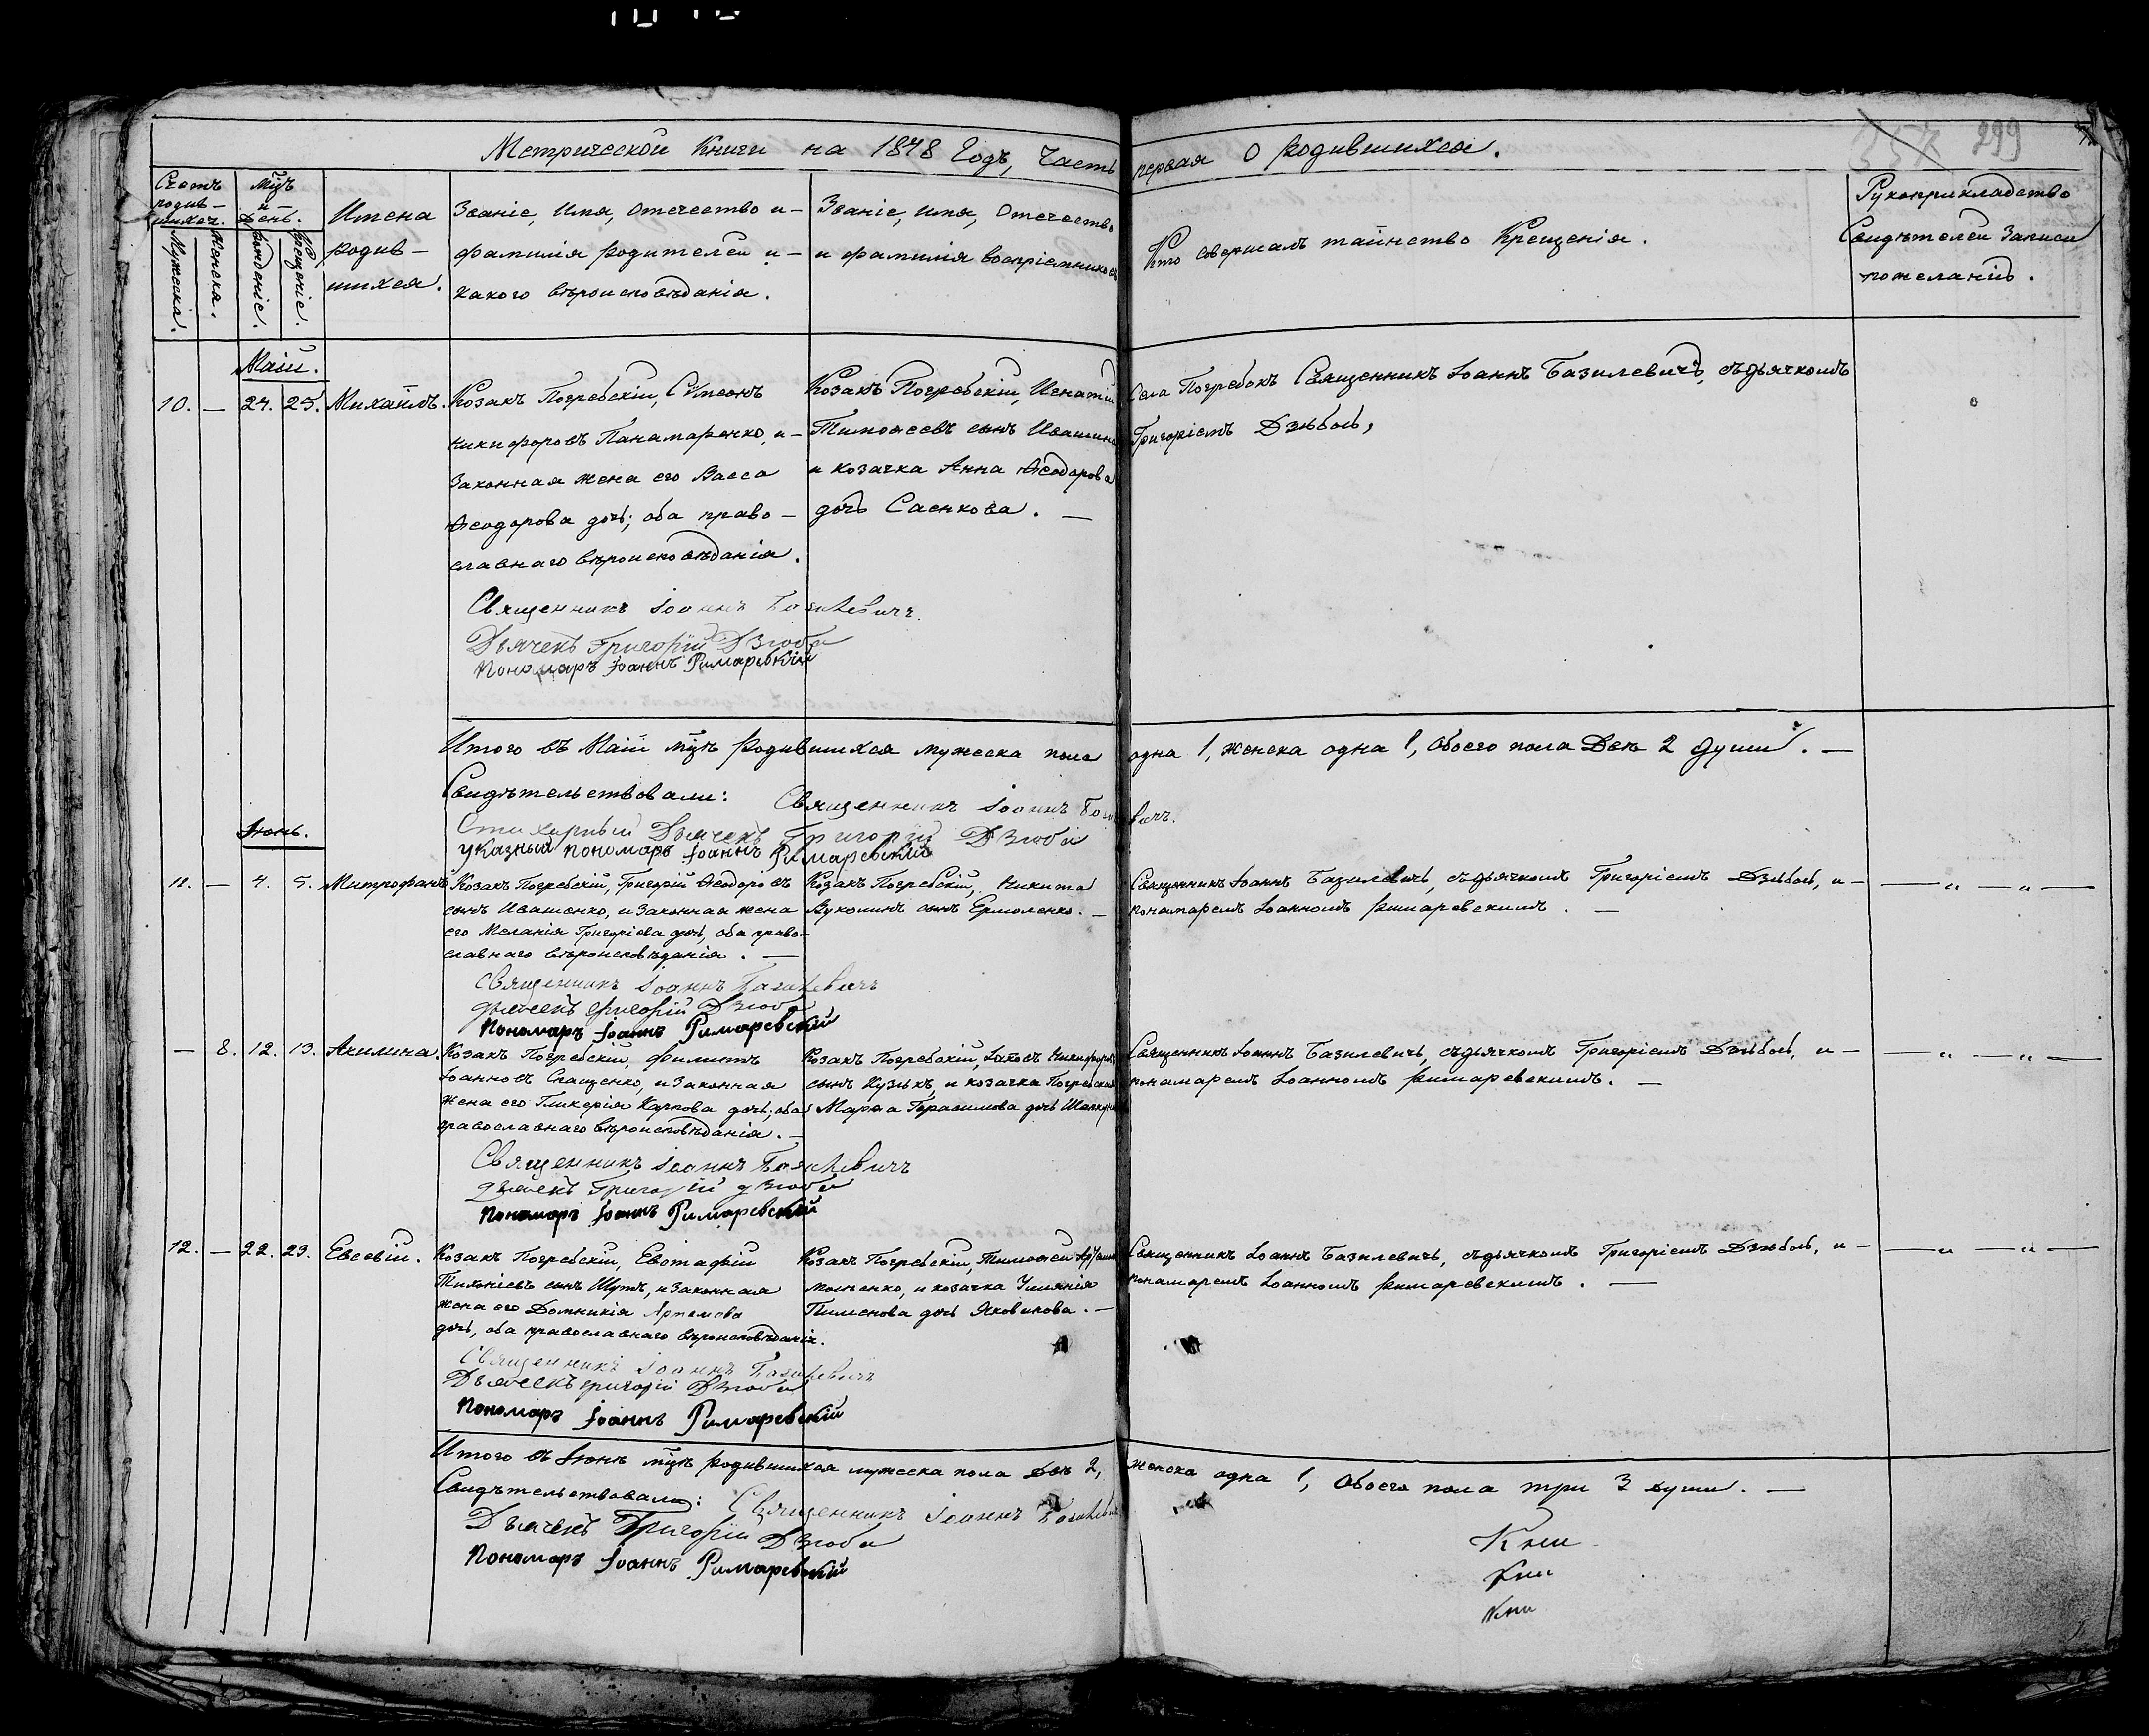 Метрической Книги на 1848 Годъ, Часть первая О родившихся.
299
Счетъ родив-шихся.
Мужеска.
Женска.
Мцъ и День.
Рожденіе.
Крещеніе.
Имена
родив-
шихся.
Званіе, Имя, Отечество и-
фамилія родителей и-
какого вѣроисповѣданія.
Званіе, имя, Отечество
и фамилія воспріемниковъ
Кто совершалъ таинство Крещенія.
Рукоприкладство
Свидѣтелей Записи
пожеланію.
Маій.
10. — 24. 25. Михаилъ.
Козакъ Погребскій, Сѵмеонъ
Никифоровъ Панамаренко, и-
Законная жена его Васса
Ѳеодорова дочь; оба право-
славнаго вѣроисповѣданія.
Козакъ Погребскій, Игнатій
Тимоѳеевъ сынъ
и козачка Анна Ѳеодорова
дочь Саенкова. —
Села Погребокъ Священникъ Іоаннъ Базилевичъ, съдьячкомъ
Григоріемъ Дзюбою,
Священникъ Іоаннъ Базилевичъ.
Дьячекъ Григорій Дзюба
Пономарь Іоаннъ Римаревскій
Итого въ Маіи мцѣ родившихся мужеска пола одна 1, женска одна 1, Обоего пола Двѣ 2 души. —
Свидѣтельствовали: Священникъ Іоаннъ
Стихарный Дьячекъ Григорій Дзюба
Указный пономарь Іоаннъ Римаревскій
Іюнь.
11. — 4. 5. Митрофанъ
Козакъ Погребскій, Григорій Ѳеодоровъ
сынъ Ивашенко, и Законная жена
его Меланія Григоріева дочь, оба право-
славнаго вѣроисповѣданія. —
Козакъ Погребскій, Никита
Вуколинъ сынъ Ермоленко. —
Священникъ Іоаннъ Базилевичъ, съдьячкомъ Григоріемъ Дзюбою, и-
понамаремъ Іоанномъ Римаревскимъ. —
— „ — „ —
Священникъ Іоаннъ Базилевичъ
дьячекъ Григорій Дзюба
Пономарь Іоаннъ Римаревскій
— 8. 12. 13. Акилина.
Козакъ Погребскій, Филиппъ
Іоанновъ Спащенко, и Законная
жена его Гликерія Карпова дочь; оба
православнаго вѣроисповѣданія. —
Козакъ Погребскій, Іаковъ Никифоровъ
сынъ Кузькъ, и козачка Погребская
Марѳа Герасимова дочь
Священникъ Іоаннъ Базилевичъ, съдьячкомъ Григоріемъ Дзюбою, и-
понамаремъ Іоанномъ Римаревскимъ. —
— „ — „ —
Священникъ Іоаннъ Базилевичъ
дьячекъ Григорій дзюба
Пономарь Іоаннъ Римаревскій
12. — 22. 23. Евсевій.
Козакъ Погребскій, Евстафій
Тихоніевъ сынъ Шутъ, и Законная
жена его Домникія Артемова
дочь, оба православнаго вѣроисповѣданія.
Козакъ Погребскій, Тимоѳей
и козачка Уліянія
Пименова дочь Яковикова. —
Священникъ Іоаннъ Базилевичъ, съдьячкомъ Григоріемъ Дзюбою, и-
понамаремъ Іоанномъ Римаревскимъ. —
— „ — „ —
Священникъ Іоаннъ Базилевичъ
Дьячекъ Григорій Дзюба
Пономарь Іоаннъ Римаревскій
Итого въ Іюнѣ мцѣ родившихся мужеска пола двѣ 2, женска одна 1, Обоего пола три 3 души. —
Свидѣтельствовали: Священникъ Іоаннъ
Дьячекъ Григорій Дзюба
Пономарь Іоаннъ Римаревскій
Кни
Кни
Кни